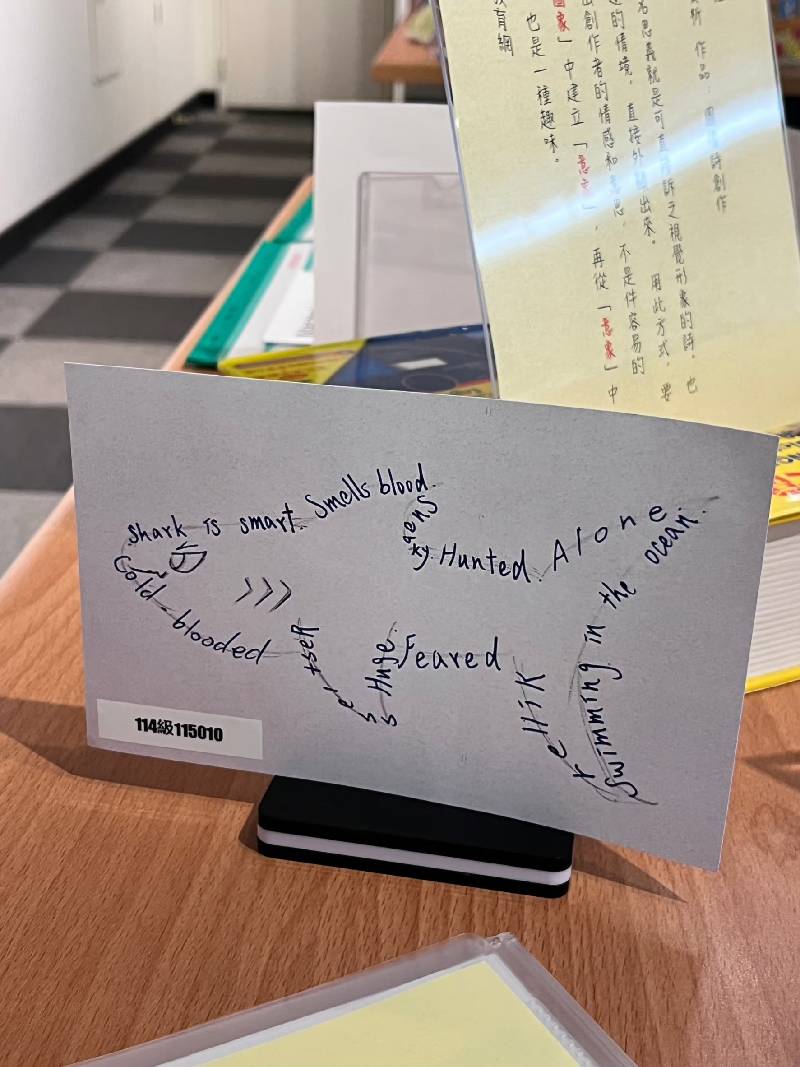 作品:圖象詩創作
思義就是可直接訴之視覺形象的詩,也
的情境,直接外出來。用此方式,要
出創作者的情感和意思,不是件容易的
」中建立「意象」,再從「意象」中
也是一種趣味。
教育網
Shark is smart. Smells blood.
Hunted. Alone
Swimming in the ocean.
Killer
Feared
Huge.
Restless
Cold-blooded
114級115010